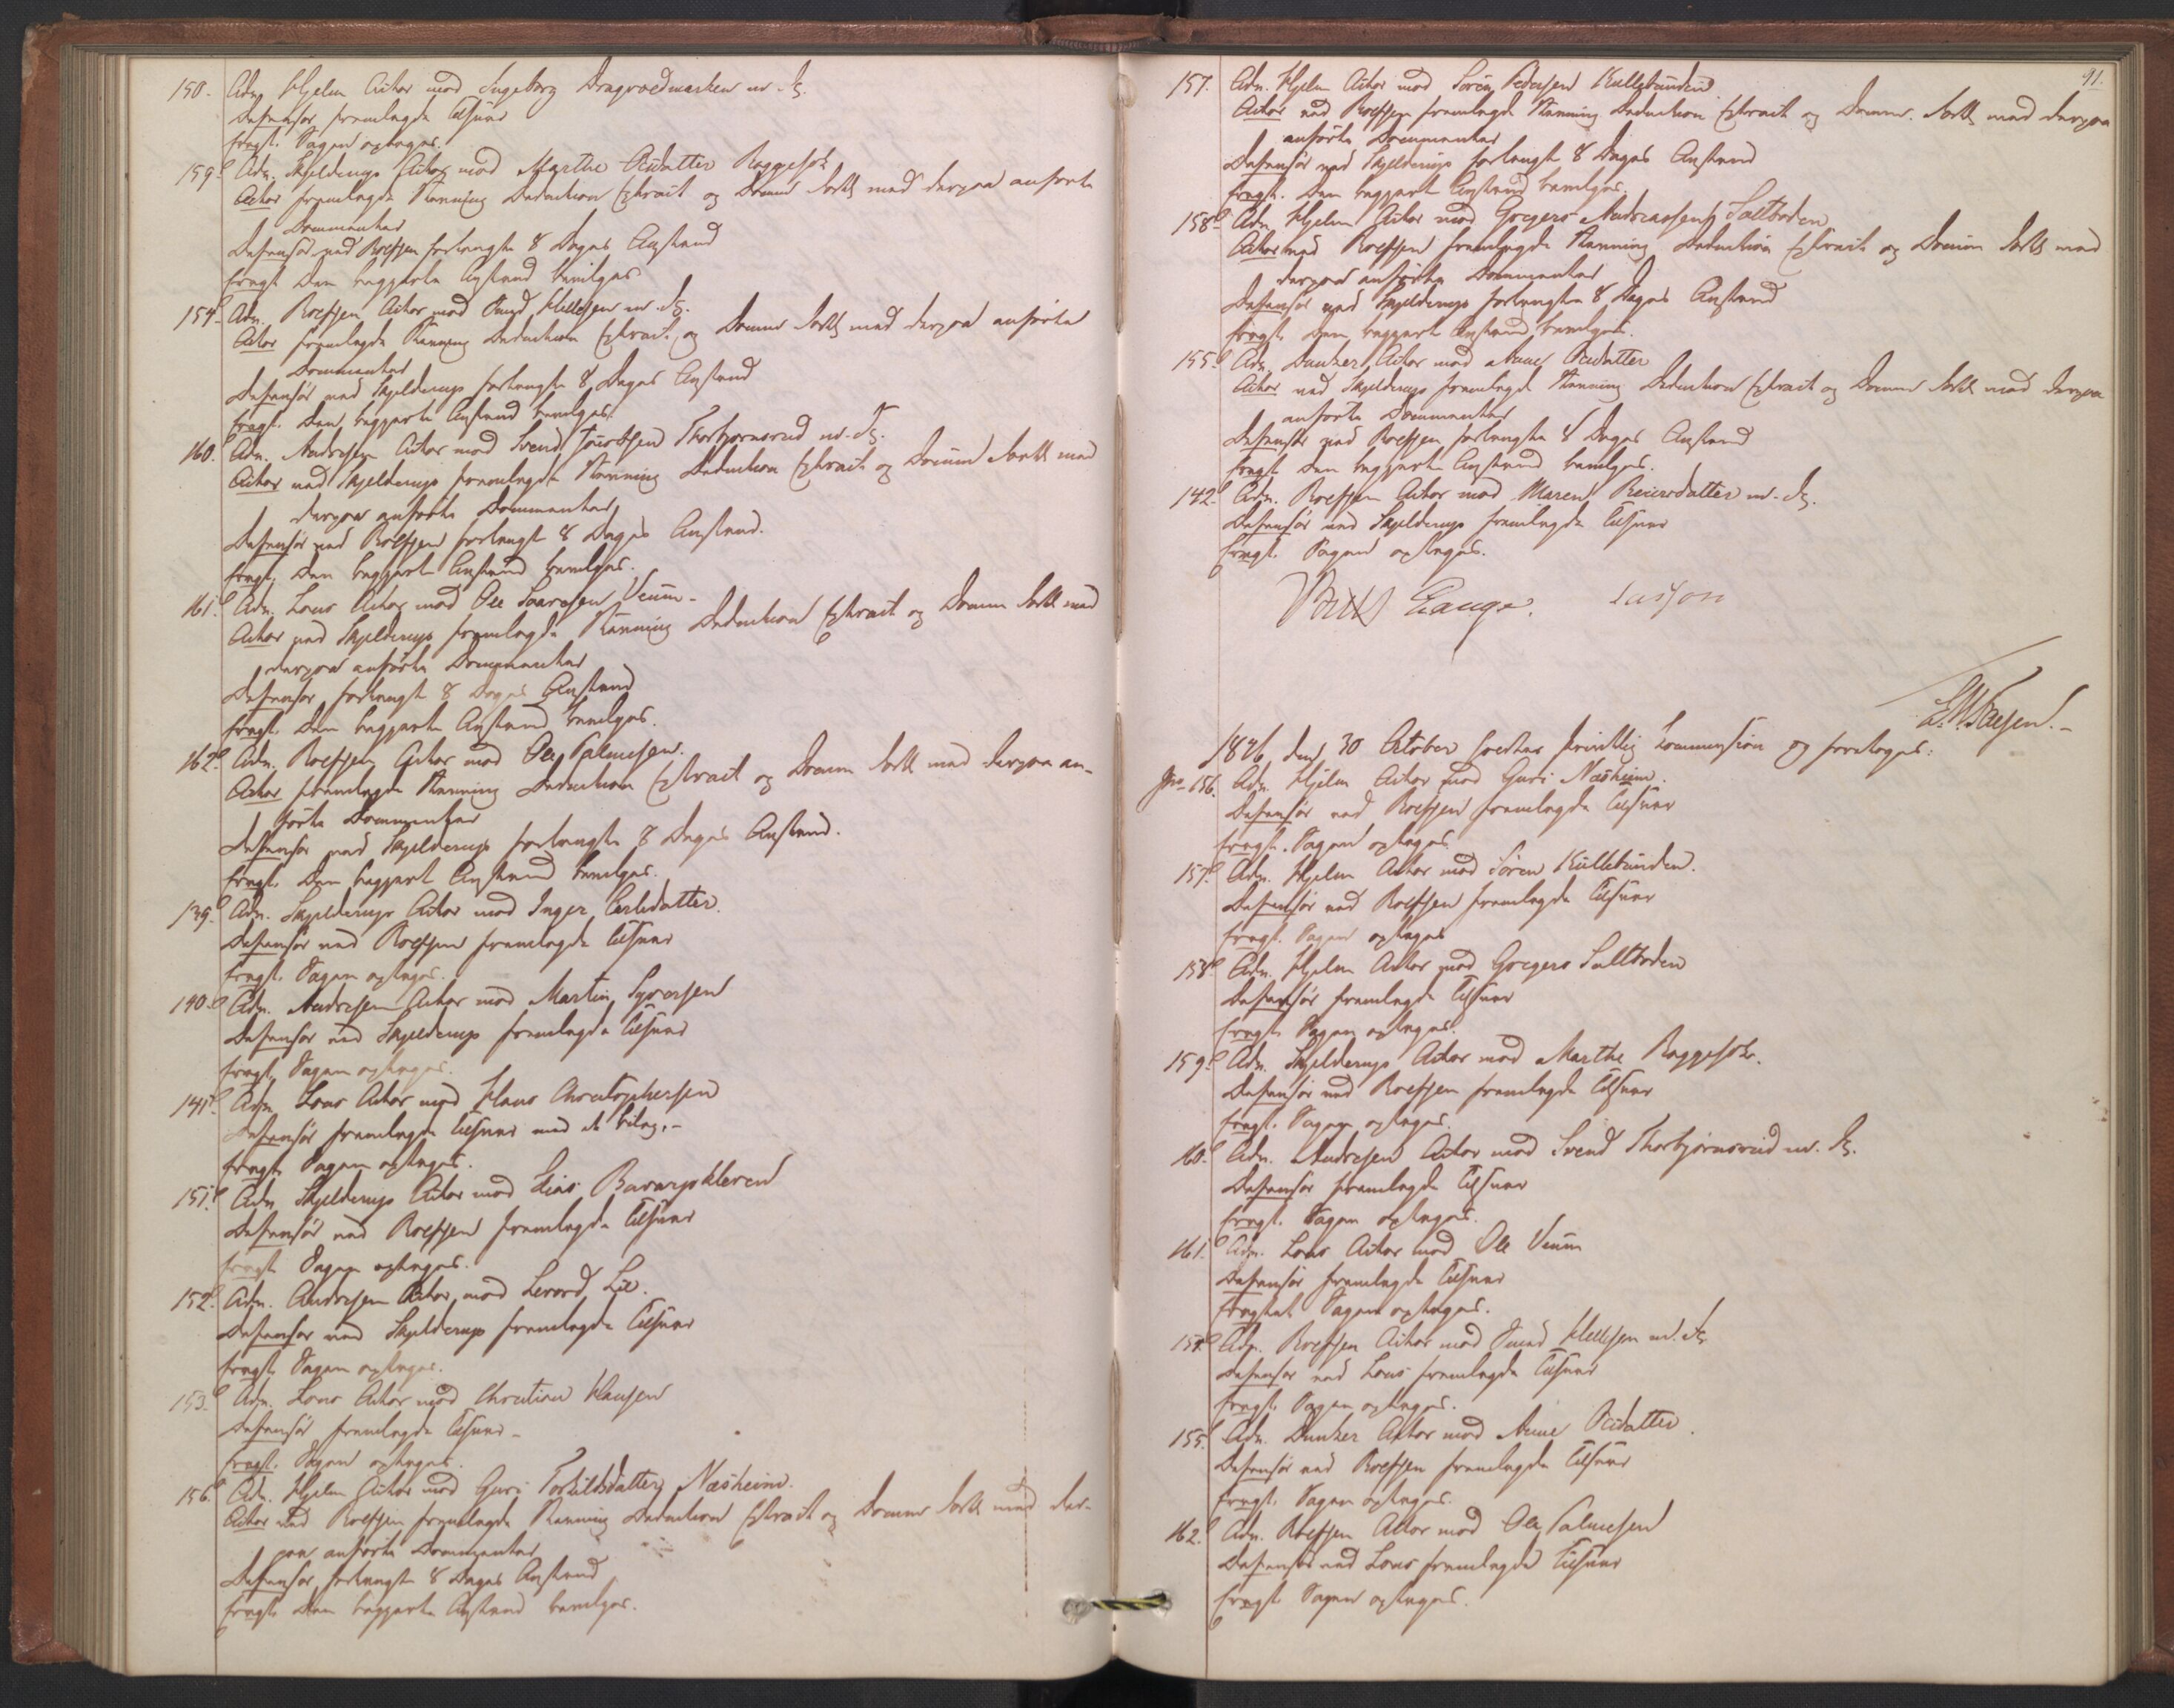 150. Adv. Hjelm Actor mod Ingeborg Dragvoldmarken m. fl.
Defensor fremlagde Tilsvar
Fragt. Sagen optages.
159. Adv. Skjelderup Actor mod Marthe Oudatter Roggesok
Actor fremlagde Stævning Deduction Extract og Domme Sortts med derpaa anførte
Documenter
Defensor ved Rolfsen forlangte 8 Dages Anstand
Fragt Den begjærte Anstand bevilges
154. Adv. Rolfsen Actor mod Knud Hellesen m. fl.
Actor fremlagde Stævning Deduction Extract og Domme med derpaa anførte
Documenter
Defensor ved Skjelderup forlangte 8 Dages Anstand
Fragt. Den begjærte Anstand bevilges.
160. Adv. Andresen Actor mod Svend Thorbjørnsrud m. fl.
Actor ved Skjelderup fremlagde Stævning Deduction Extract og Domme med
derpaa anførte Documenter
Defensor ved Rolfsen forlangte 8 Dages Anstand.
Fragt. Den begjærte Anstand bevilges.
161. Adv. Lous Actor mod Ole Veum.
Actor ved Skjelderup fremlagde Stævning Deduction Extract og Domme med
derpaa anførte Documenter
Defensor forlangte 8 Dages Anstand
Fragt. Den begjærte Anstand bevilges.
162. Adv. Rolfsen Actor mod Ole Palmesen.
Actor fremlagde Stævning Deduction Extract og Domme med derpaa an-
førte Documenter
Defensor ved Skjelderup forlangte 8 Dages Anstand.
Fragt. Den begjærte Anstand bevilges.
139. Adv. Skjelderup Actor mod Inger Carlsdatter.
Defensor ved Rolfsen fremlagde Tilsvar
Fragt. Sagen optages.
140. Adv. Andresen Actor mod Martin Syversen
Defensor ved Skjelderup fremlagde Tilsvar
Fragt. Sagen optages.
141. Adv. Lous Actor mod Hans Christophersen
Defensor fremlagde Tilsvar med et Bilag.-
Fragt. Sagen optages.
151. Adv. Skjelderup Actor mod
Defensor ved Rolfsen fremlagde Tilsvar
Fragt Sagen optages.
152. Adv. Andresen Actor mod Lie.
Defensor ved Skjelderup fremlagde Tilsvar
Fragt Sagen optages.
153. Adv. Lous Actor mod Christian Hansen
Defensor fremlagde Tilsvar-
Fragt. Sagen optages.
156. Adv. Hjelm Actor mod Guri Torkildsdatter Næsheim.
Actor ved Rolfsen fremlagde Stævning Deduction Extract og Domme med der-
paa anførte Documenter
Defensor forlangte 8 Dages Anstand
Fragt. Den begjærte Anstand bevilges.
91.
157. Adv. Hjelm Actor mod Søren Pedersen Kullebunden
Actor ved Rolfsen fremlagde Stævning Deduction Extract og Domme med derpaa
anførte Documenter
Defensor ved Skjelderup forlangte 8 Dages Anstand
Fragt. Den begjærte Anstand bevilges.
158. Adv. Hjelm Actor mod Gregers Andreassen Saltboden
Actor ved Rolfsen fremlagde Stævning Deduction Extract og Domme med
derpaa anførte Documenter
Defensor ved Skjelderup forlangte 8 Dages Anstand
Fragt. Den begjærte Anstand bevilges.
155. Adv. Dunker Actor mod Anne
Actor ved Skjelderup fremlagde Stævning Deduction Extract og Domme med derpaa
anførte Documenter
Defensor ved Rolfsen forlangte 8 Dages Anstand
Fragt Den begjærte Anstand bevilges.
142. Adv. Rolfsen Actor mod Maren Reiersdatter m. fl.
Defensor ved Skjelderup fremlagde Tilsvar
Fragt. Sagen optages.
Lange. Lasson
1846 den 30 October holdtes skriftlig Commission og foretoges:
No 156. Adv. Hjelm Actor mod Guri Næsheim.
Defensor ved Rolfsen fremlagde Tilsvar
Fragt. Sagen optages
157. Adv. Hjelm Actor mod Søren Kullebunden.
Defensor ved Rolfsen fremlagde Tilsvar
Fragt. Sagen optages
158. Adv. Hjelm Actor mod Gregers Saltboden
Defensor fremlagde Tilsvar
Fragt. Sagen optages.
159. Adv. Skjelderup Actor mod Marthe Roggesok.
Defensor ved Rolfsen fremlagde Tilsvar
Fragt. Sagen optages.
160. Adv. Andresen Actor mod Svend Thorbjørnsrud m. fl.
Defensor fremlagde Tilsvar
Fragt. Sagen optages.
161. Adv. Lous Actor mod Ole Veum
Defensor fremlagde Tilsvar
Fragtet Sagen optages.
154. Adv. Rolfsen Actor mod Knud Hellesen m. fl.
Defensor ved Lous fremlagde Tilsvar
Fragt. Sagen optages.
155. Adv. Dunker Actor mod Anne
Defensor ved Rolfsen fremlagde Tilsvar
Fragt. Sagen optages.
162. Adv. Rolfsen Actor mod Ole Palmesen
Defensor ved Lous fremlagde Tilsvar
Fragt Sagen optages.